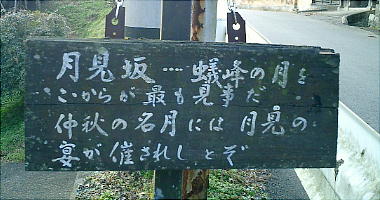 月見坂…蟻峰の月を
ここからが最も見事だ
仲秋の名月には月見の
宴が催されしとぞ